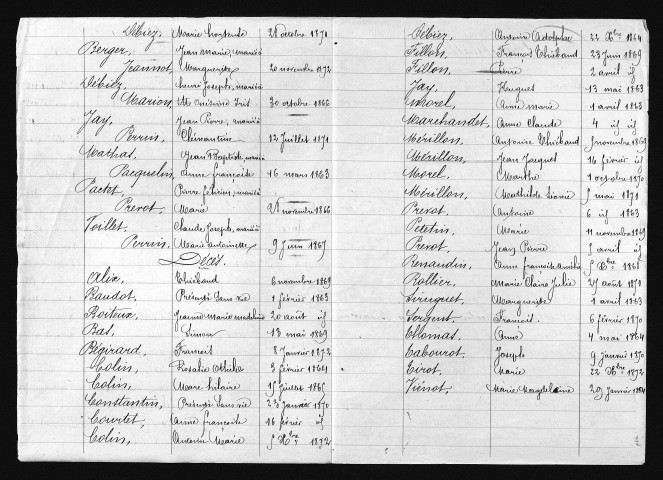 Débiez, Marie hortense 28 octobre 1871
Berger, Jean marie, marié à
Jeannot, Marguerite 20 novembre 1872
Débiez, henri Joseph, marié à
Marion, 30 octobre 1866
Jay, Jean Pierre, marié à
Perrin, Clémentine 12 Juillet 1871
Mathas, Jean Baptiste, marié à
Pacquelin, Anne françoise 16 mars 1863
Pactet, Pierre félicien, marié à
Prevot, Marie 28 novembre 1866
Toillet, Claude Joseph, marié à
Perrin, Marie antoinette 9 Juin 1867
Décès.
Alix, Thiébaud 6 novembre 1869
Baudot, Présenté Sans vie 1 février 1863
Boiteux, Jeanne marie madeleine 20 août id
Bas, Simon 13 mai 1869
Bégirard, François 8 Janvier 1872
Colin, Rosalie 3 février 1864
Colin, Marie hilaire 15 Juillet 1865
Constantin, Présenté Sans vie 23 Janvier 1870
Courtet, Anne françoise 16 février id
Colin, Marie 5 Xbre 1872
Débiez, Antoine Adolphe 22 Xbre 1864
Fillon, François Thiébaud 23 Juin 1869
Fillon, Pierre 2 avril id
Jay, Huguet 13 mai 1863
Morel, Anne marie 1 avril 1863
Marchandet, Anne Claude 4 id id
Mérillon, Antoine Thiébaud 5 novembre 1869
Mérillon, Jean Jacques 16 février id
Morel, Marthe 1 octobre 1870
Mérillon, Mathilde 5 mai 1871
Prevot, Antoine 6 id 1863
Petetin, Marie 11 novembre 1869
Prevot, Jean Pierre 5 avril id
Renaudin, Anne françoise 5 Xbre 1865
Rollier, Marie Claire Julie 27 août 1871
Siruguet, Marguerite 1 avril 1863
Sergent, François 6 février 1870
Thomas, Anne 4 mai 1864
Tabourot, Joseph 9 Janvier 1870
Tirot, Marie 22 Xbre 1872
Viénot, Marie Magdeleine 29 Janvier 1864